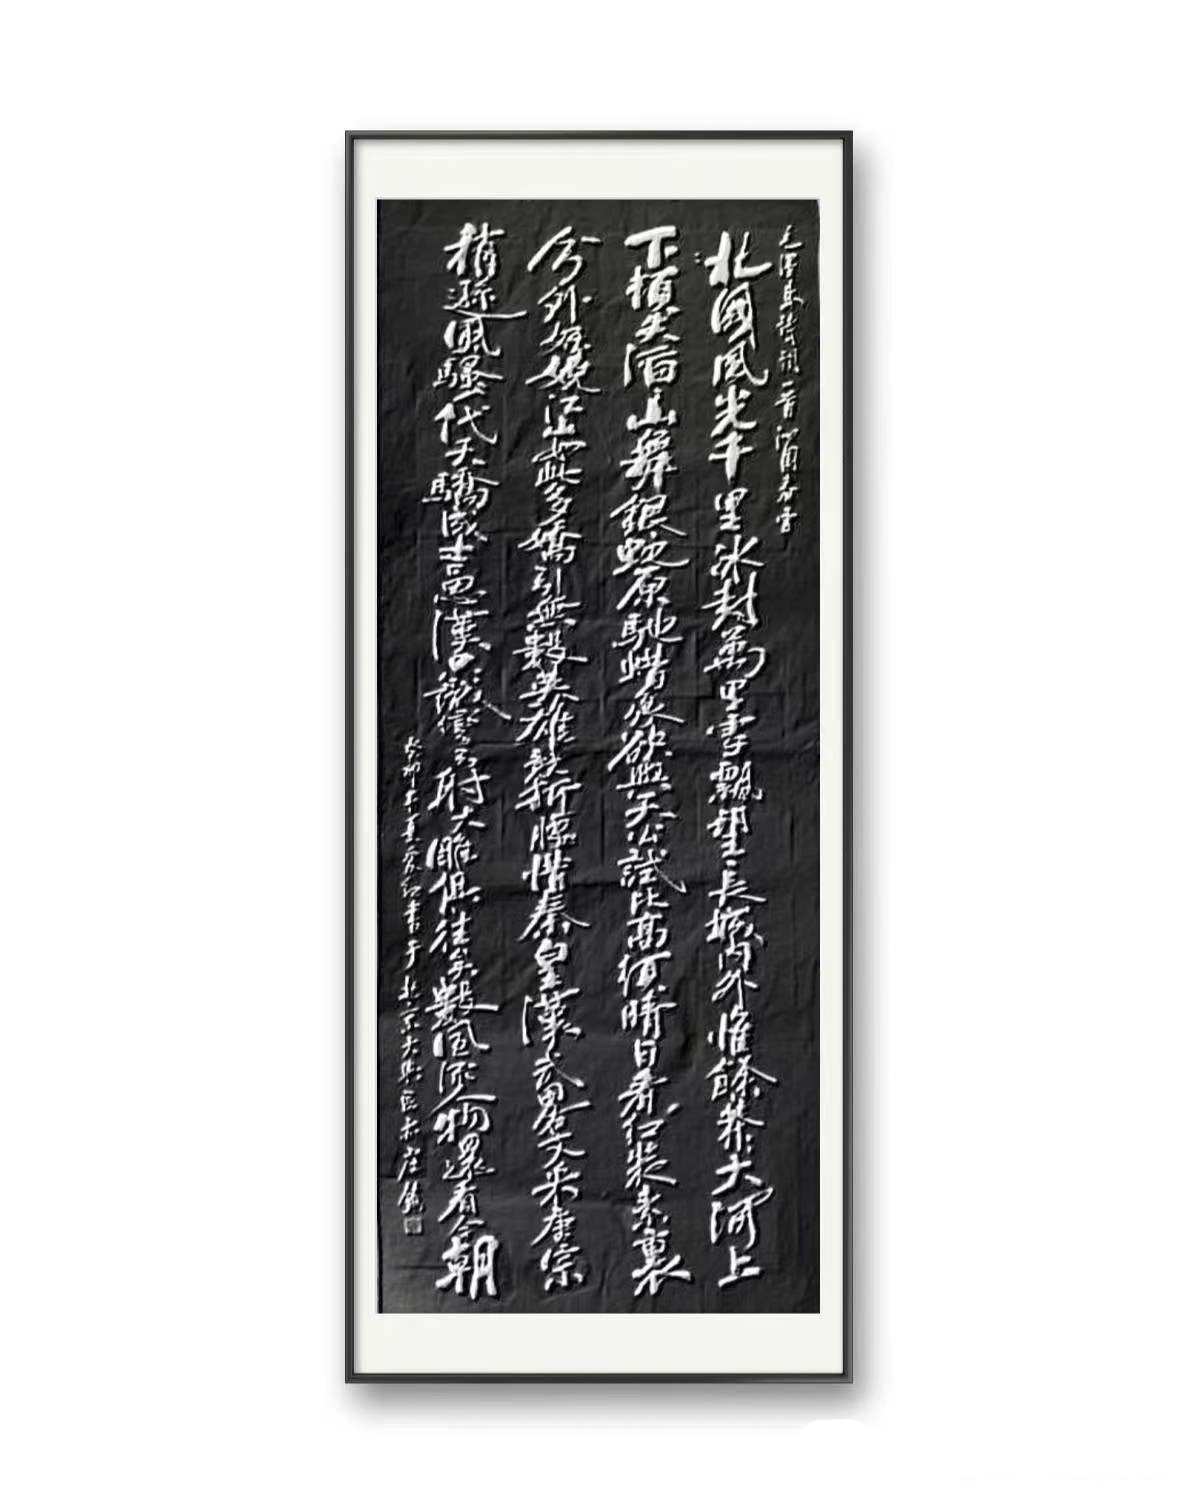 毛澤東詩詞一首沁園春雪
北國風光千里冰封萬里雪飄望長城內外惟餘莽々大河上
下頓失滔々山舞銀蛇原馳蜡象欲與天公試比高須晴日看紅裝素裹
分外妖嬈江山如此多嬌引無數英雄競折腰惜秦皇漢武畧文采唐宗
稍遜風騷一代天驕成吉思漢只識彎弓射大雕俱往矣數風流人物還看今朝
癸卯年夏書于北京大興區亦庄鎮